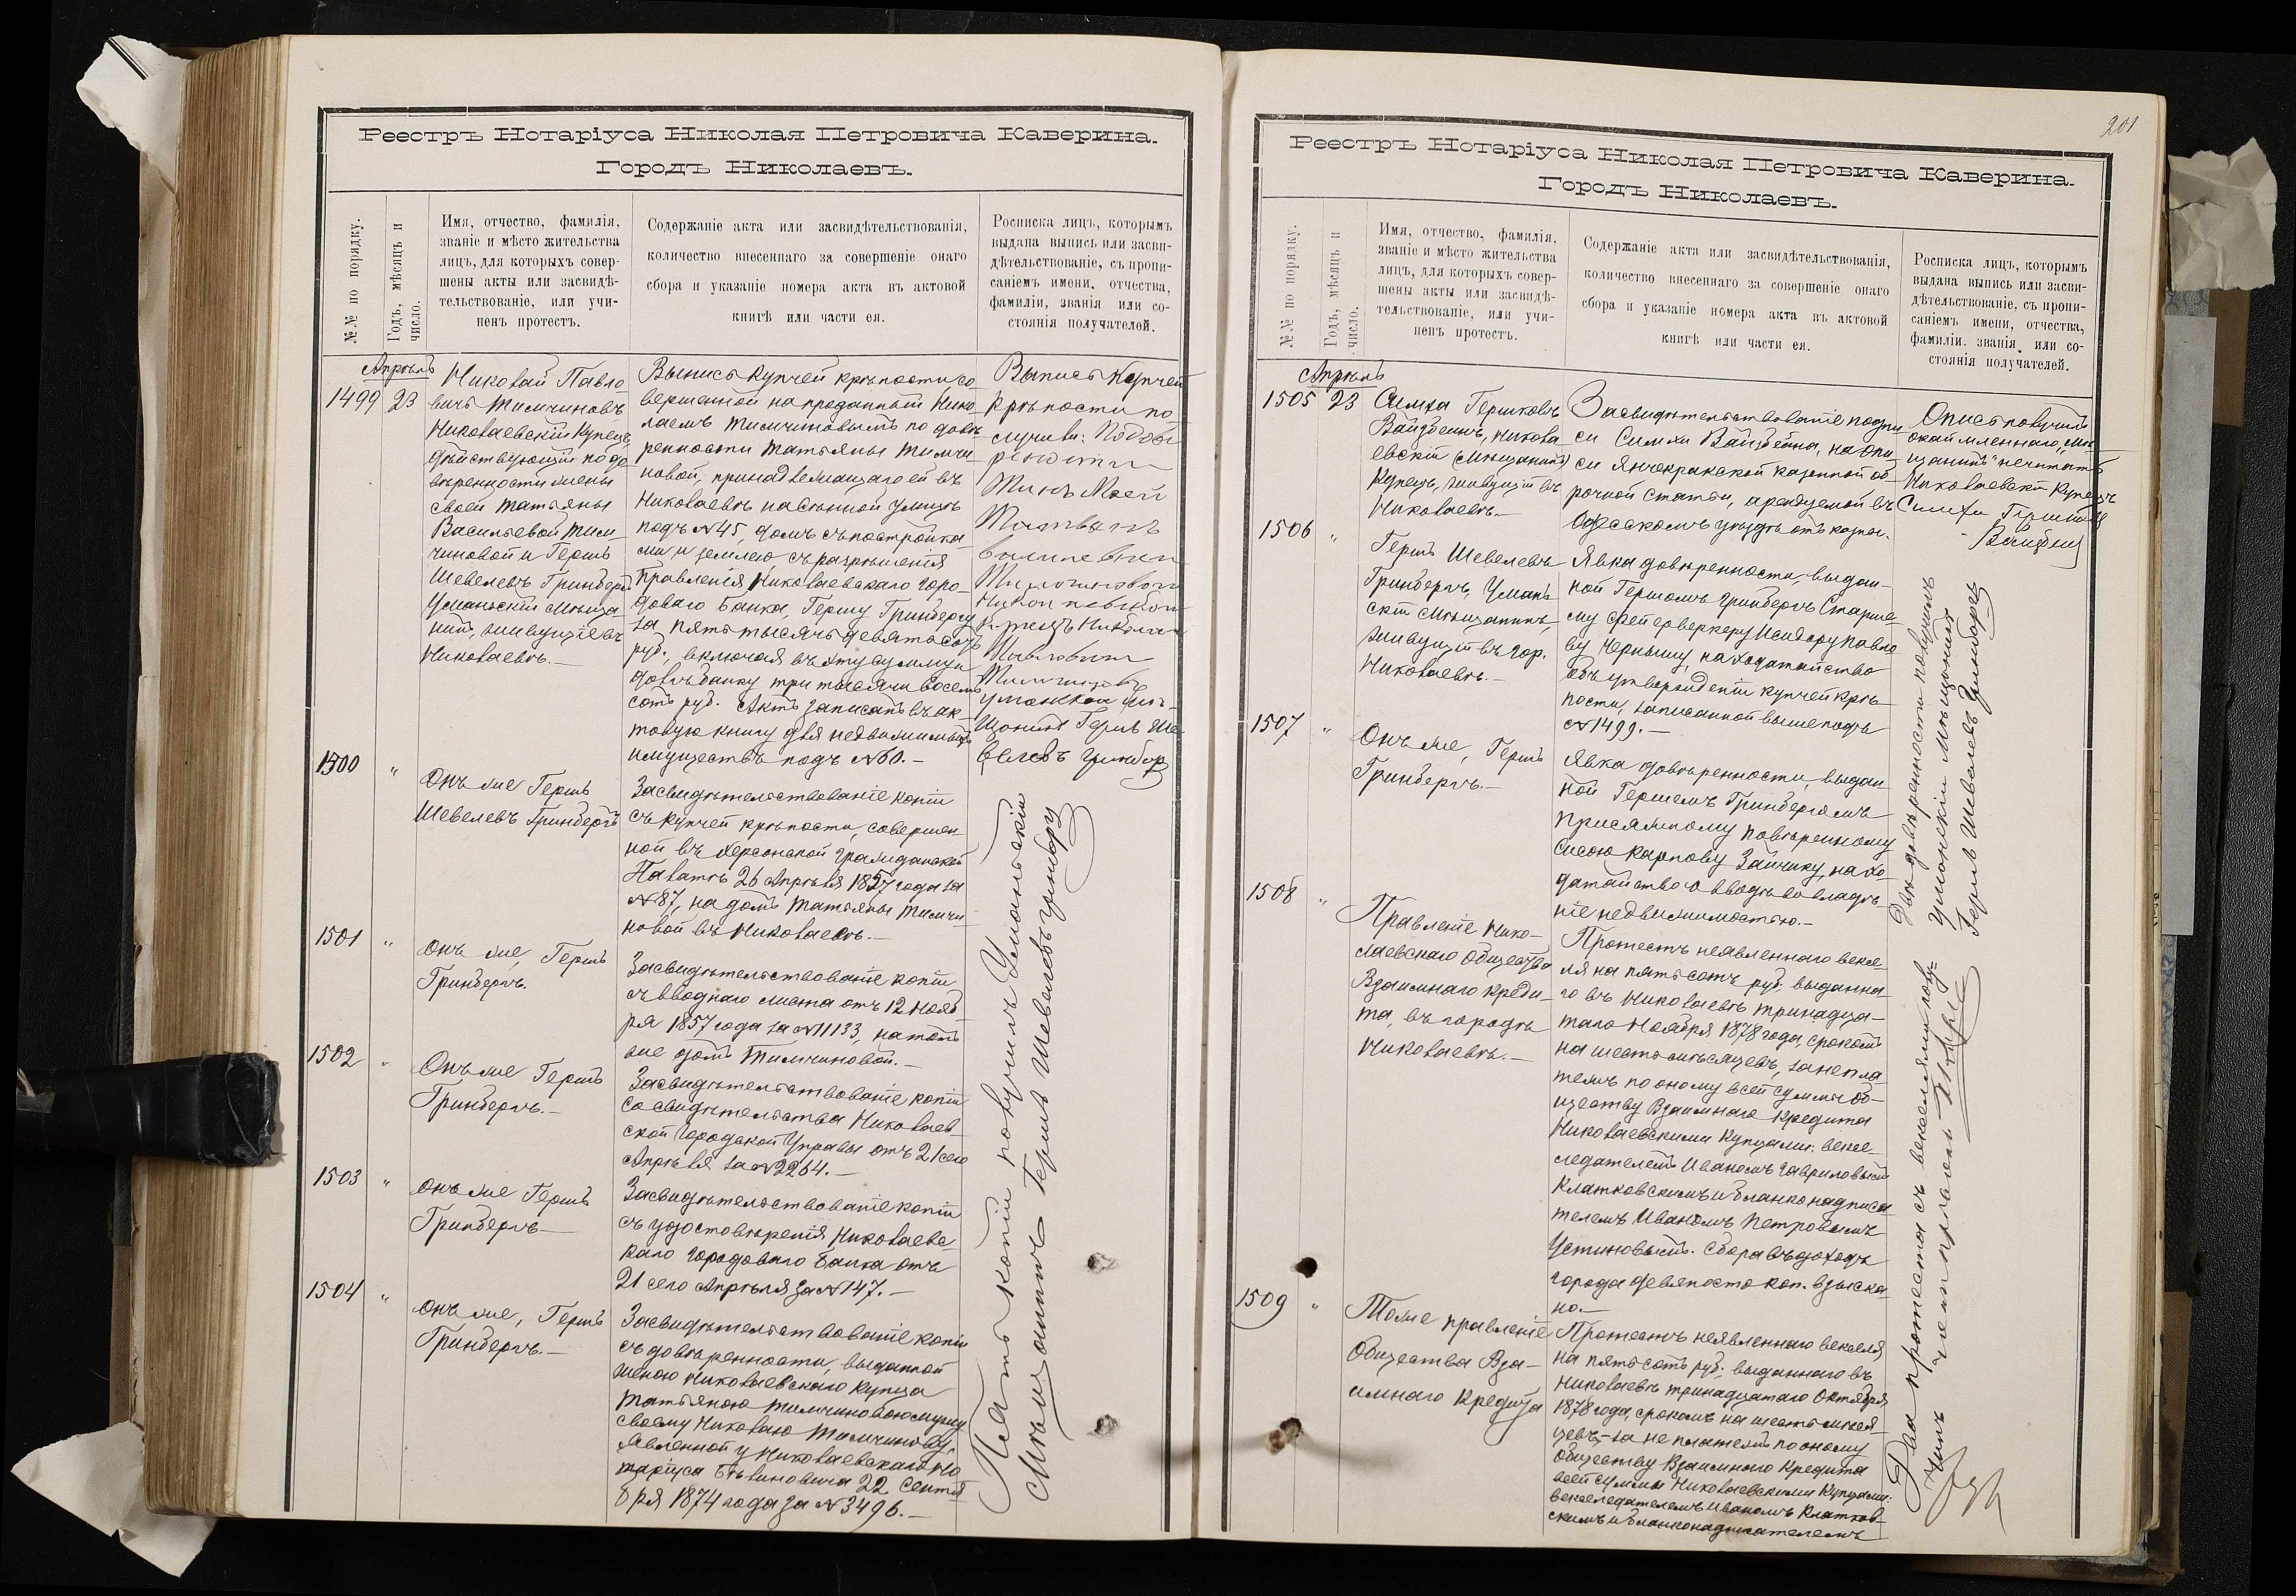 Реестръ Нотаріуса Николая Петровича Каверина.
Городъ Николаевъ.
№№ по порядку.
Годъ, мѣсяцъ и
число.
Имя, отчество, фамилія,
званіе и мѣсто жительства
лицъ, для которыхъ совер-
шены акты или засвидѣ-
тельствованіе, или учи-
ненъ протестъ.
Содержаніе акта или засвидѣтельствованія,
количество внесеннаго за совершеніе онаго
сбора и указаніе номера акта въ актовой
книгѣ или части ея.
Росписка лицъ, которымъ
выдана выпись или засви-
дѣтельствованіе, съ пропи-
саніемъ имени, отчества,
фамиліи, званія или со-
стоянія получателей.
Апрѣль
1499 23
Николай Павло
вичъ Тимчиновъ
Николаевскій Купецъ,
дѣйствующій по до
вѣренности жены
своей Татьяны
Васильевой Тим-
чиновой и Гершъ
Шевелевъ Гринбергъ
Уманьскій Мѣща
нинъ, живущіе въ
Николаевѣ.—
Выпись купчей крѣпости, со
вершенной на проданный Нико
лаемъ Тимчиновымъ по довѣ
ренности Татьяны Тимчи
новой, принадлежащаго ей въ
Николаевѣ на Сѣнной улицѣ
подъ №45, домъ съ постройка
ми и землею, съ разрѣшенія
Правленія Николаевскаго Горо-
доваго Банка, Гершу Гринбергу
за пять тысячъ девятьсотъ
руб., включая въ эту сумму и
долгъ банку три тысячи восемь
сотъ руб. Актъ записанъ въ ак-
товую книгу для недвижимыхъ
имуществъ подъ №60.—
Выпись Купчей
крѣпости по
лучили: По довѣ
ренности
жены моей
Татьяны
Васильевны
Тимчиновой
Николаевскій
купецъ Николай
Павловичъ
Тимчиновъ
уманскій Мѣ-
щанинъ Гершъ Ше
велевъ Гринберг
1500 "
Онъ же Гершъ
Шевелевъ Гринбергъ
Засвидѣтельствованіе копіи
съ купчей крѣпости, совершен
ной въ Херсонской Гражданской
Палатѣ 26 Апрѣля 1857 года за
№87, на домъ Татьяны Тимчи
новой въ Николаевѣ.—
1501 "
Онъ же, Гершъ
Гринбергъ.
Засвидѣтельствованіе копіи
съ вводнаго листа отъ 12 Нояб
ря 1857 года за №11133, на тотъ
же домъ Тимчиновой.—
1502 "
Онъ же Гершъ
Гринбергъ.—
Засвидѣтельствованіе копіи
со свидѣтельства Николаев-
ской Городской Управы отъ 21 сего
Апрѣля за №2264.—
1503 "
Онъ же Гершъ
Гринбергъ—
Засвидѣтельствованіе копіи
съ удостовѣренія Николаевс-
каго Городоваго Банка отъ
21 сего Апрѣля за №147.—
1504 "
Онъ же, Гершъ
Гринбергъ.—
Засвидѣтельствованіе копіи
съ довѣренности, выданной
женою Николаевскаго Купца
Татьяною Тимчиновою мужу
своему Николаю Тимчинову,
явленной у Николаевскаго Но
таріуса Бѣлиновича 22 Сентя
бря 1874 года за №3496.—
Пять копій получилъ Уманьскій
Мѣщанинъ Гершъ Шевелевъ Гринберг
201
Реестръ Нотаріуса Николая Петровича Каверина.
Городъ Николаевъ.
№№ по порядку.
Годъ, мѣсяцъ и
число.
Имя, отчество, фамилія,
званіе и мѣсто жительства
лицъ, для которыхъ совер-
шены акты или засвидѣ-
тельствованіе, или учи-
ненъ протестъ.
Содержаніе акта или засвидѣтельствованія,
количество внесеннаго за совершеніе онаго
сбора и указаніе номера акта въ актовой
книгѣ или части ея.
Росписка лицъ, которымъ
выдана выпись или засви-
дѣтельствованіе, съ пропи-
саніемъ имени, отчества,
фамиліи. званія, или со-
стоянія получателей.
Апрѣль
1505 23
Симха Гершковъ
Вайзбейнъ, Никола
евскій (Мѣщанинъ)
Купецъ, живущій въ
Николаевѣ.—
Засвидѣтельствованіе подпи
си Симхи Вайзбейна, на опи
си Янчекракской казенной об-
рочной статьи, арендуемой въ
Одесскомъ уѣздѣ отъ казны.
Опись получилъ
окаймленнаго „мѣ
щанинъ" не читать
Николаевскій Купецъ
Симха Гершковъ
Вайзбейн
1506 "
Гершъ Шевелевъ
Гринбергъ, Умань
скій Мѣщанинъ,
живущій въ гор.
Николаевѣ.—
Явка довѣренности, выдан-
ной Гершомъ Гринбергъ Старше
му Фейерверкеру Исидору Павло
ву Чернышу, на ходатайство
объ утвержденіи купчей крѣ-
пости, записанной выше подъ
№1499.—
1507 "
Онъ же, Гершъ
Гринбергъ.—
Явка довѣренности, выдан
ной Гершемъ Гринбергомъ
Присяжному Повѣренному
Сысою Карпову Зайчику, на хо-
датайство о вводѣ во владѣ-
ніе недвижимостью.—
Двѣ довѣренности получилъ
Уманскій Мѣщанинъ
Гершъ Шевелевъ Гринберг
1508 "
Правленіе Нико-
лаевскаго Общества
Взаимнаго Креди-
та, въ городѣ
Николаевѣ.—
Протестъ неявленнаго вексе-
ля на пятьсотъ руб. выданна-
го въ Николаевѣ тринадца-
таго Ноября 1878 года, срокомъ
на шесть мѣсяцевъ, за непла
тежъ по оному всей суммы Об-
ществу Взаимнаго Кредита
Николаевскими Купцами: вексе-
ледателемъ Иваномъ Гавриловымъ
Клатковскимъ и бланконадписа
телемъ Иваномъ Петровымъ
Устиновымъ. Сбора въ доходъ
города девяносто коп. взыска
но.—
1509 "
Тоже правленіе
Общества Вза-
имнаго Кредита
Протестъ неявленнаго векселя
на пятьсотъ руб. выданнаго въ
Николаевѣ тринадцатаго Октября
1878 года, срокомъ на шесть мѣся-
цевъ,—за неплатежъ по оному
Обществу Взаимнаго Кредита
всей суммы Николаевскими Купцами:
векселедателемъ Иваномъ Клатков-
скимъ и бланконадписателемъ
Два протеста съ векселями полу=
чилъ